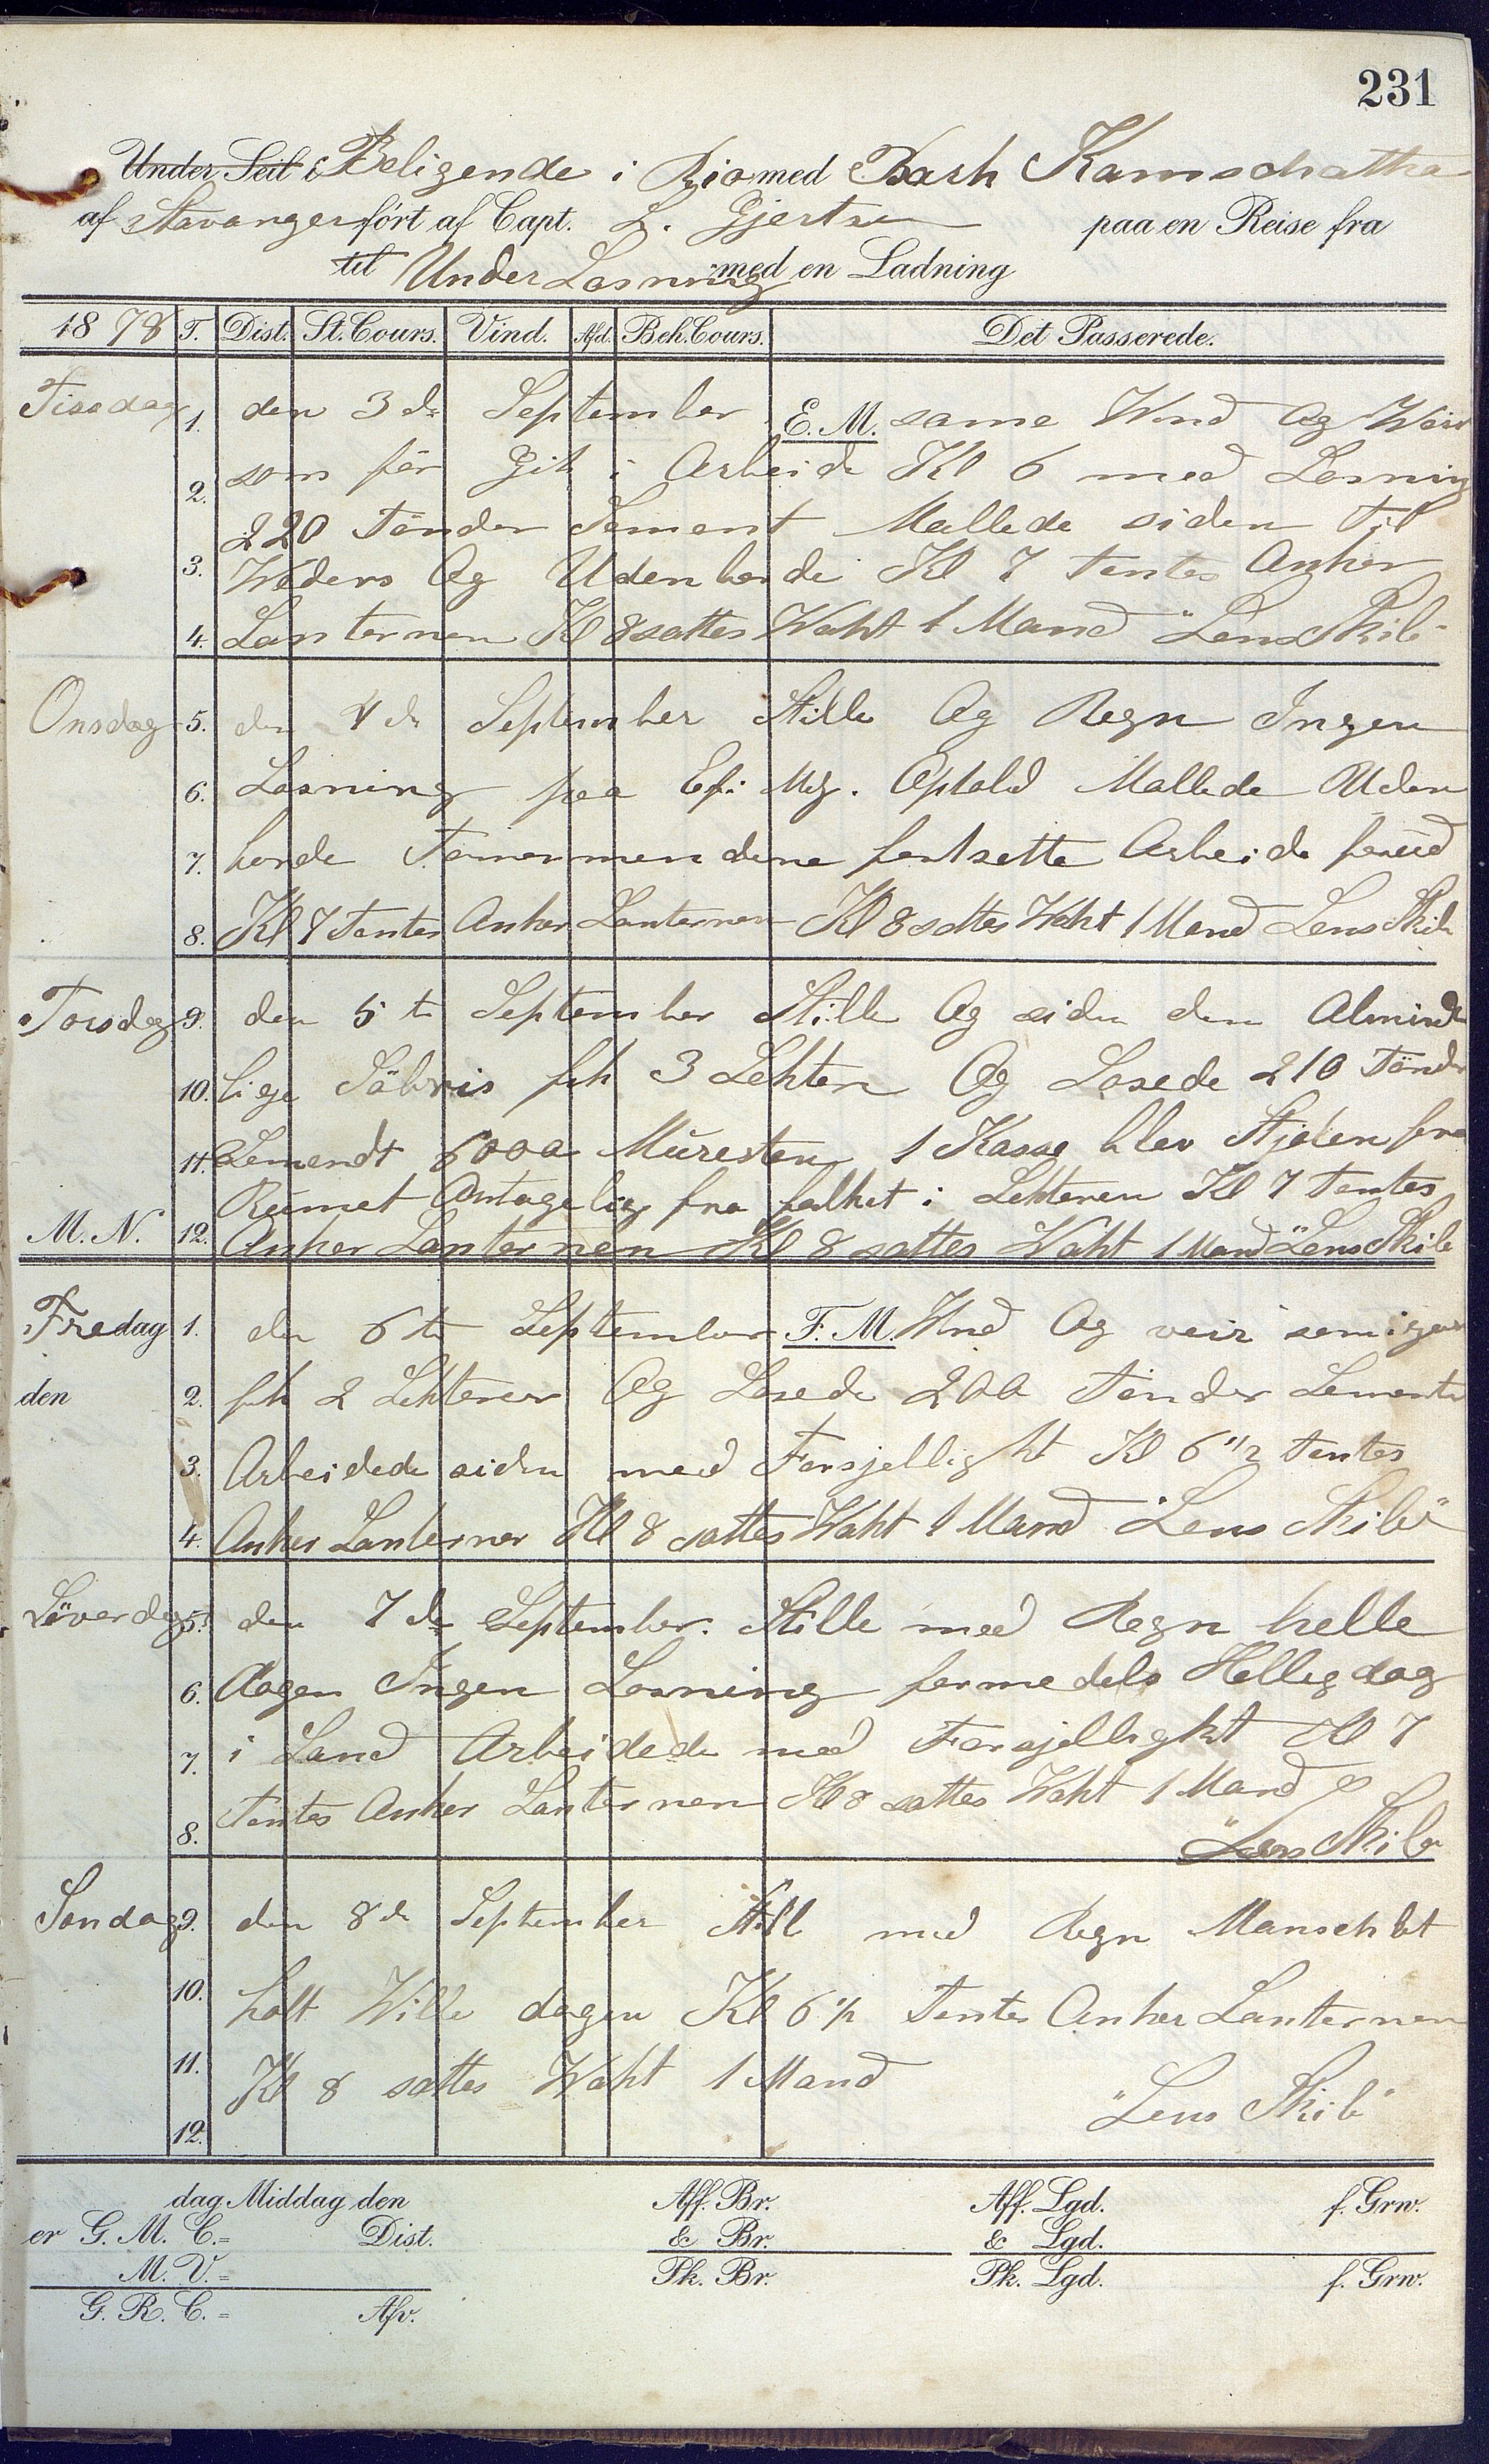 231
Under Seil i Beligende i Rio med Bark Kamschatka
af Stavanger fört af Capt. L. Gjertsen paa en Reise fra
til Under Losning med en Ladning
1878 T. Dist. St. Cours. Vind. Afd. Beh. Cours. Det Passerede.
Tissdag 1. den 3de September E. M. same Wind Og Weir
2. som för Gik i Arbeide Kl 6 med Losning
220 Tönder Sement Mallede siden Til
3. Weders Og Udenborde Kl 7 tentes Anker
4. Lanternen Kl 8 sattes Waht 1 Mand "Lens Skib"
Onsdag 5. den 4de September Stille Og Regn Ingen
6. Losning paa Efr Mg. Ophold Mallede Uden
7. borde Tömermendene fortsette Arbeide forud
8. Kl 7 Tentes Anker Lanternen Kl 8 sattes Waht 1 Mand Lens Skib
Torsdag 9. den 5te September Stille Og siden den Alminde
10. lige Söbris fik 3 Lehter Og Losede 210 Tönder
11. Semendt 6000 Muresten 1 Kasse blev Stjelen fra
Rumet Antagelig fra folket i Lehteren Kl 7 tentes
M. N. 12. Anker Lanternen Kl 8 sattes Waht 1 Mand "Lens Skib
Fredag 1. den 6te September F. M. Wind Og veir som igaar
den 2. fik 2 Lehterer Og Losede 200 Tönder Sement
3. Arbeidede siden med Forsjelligt Kl 6 1/2 tentes
4. Anker Lanterner Kl 8 sattes Waht 1 Mand "Lens Skib"
Löverdag 5. den 7de September. Stille med Regn helle
6. dagen Ingen Losning formedels Helligdag
7. i Land Arbeidede med Forsjelligkt Kl 7
8. tentes Anker Lanternen Kl 8 sattes Waht 1 Mand
"Lens Skib
Sondag 9. den 8de September Still med Regn Manschbet
10. holt Wille dagen Kl 6 1/2 Tentes Anker Lanternen
11. Kl 8 sattes Waht 1 Mand
12. "Lens Skib"
dag Middag den Aff. Br. Aff. Lgd. f. Grw.
er G. M. C.= Dist. & Br. & Lgd.
M. V.= Pk. Br. Pk. Lgd. f. Grw.
G. R. C.= Afv.